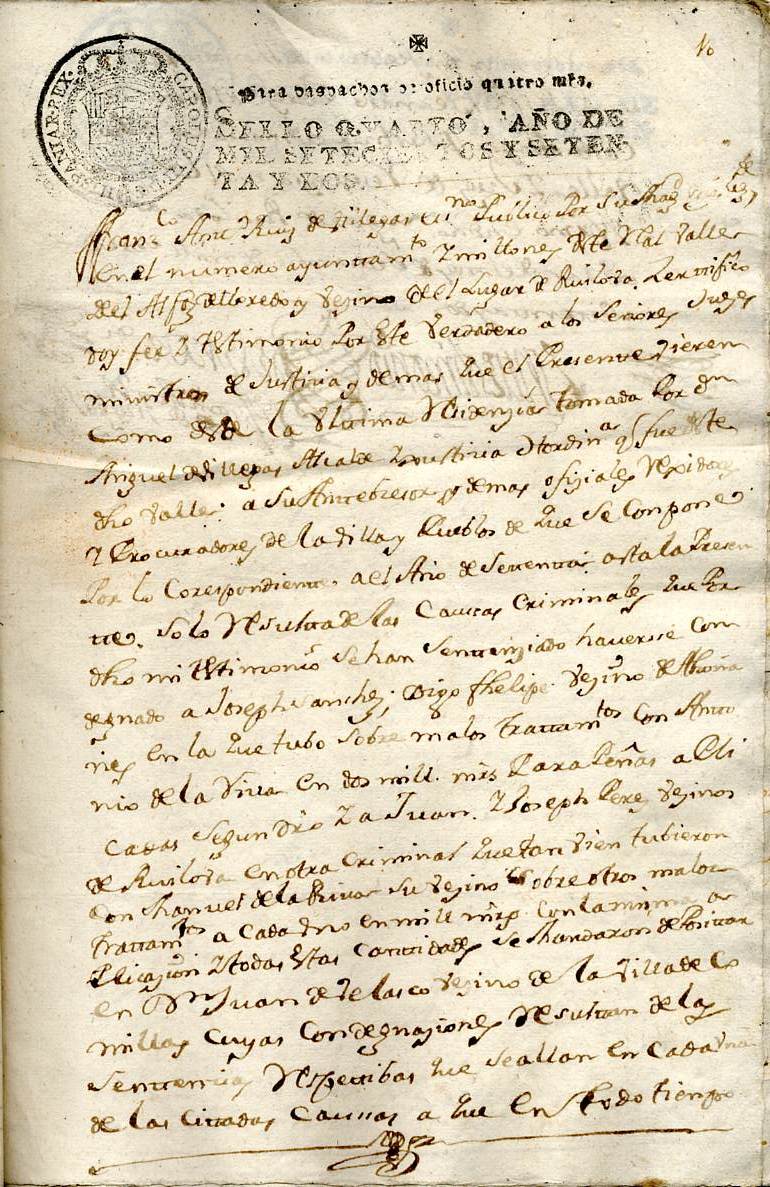 10
Para despachos de oficio quatro mrs.
SELLO QVARTO, AÑO DE
MIL SETECIENTOS Y SETEN
TA Y DOS.
CAROLUS III HISPANIAR REX
Franco Antt Ruiz de Villegas esno Publico Por Su Magd
en el numero ayunttamto y millones deste Rl Valle
del Alfoz de lloredo y vezino del Lugar de Ruiloba. Zerttifico
doy fee y testimonio Por este berdadero a los Señores Juezes
ministros de Justicia y demas que el Presente vieren
Como desde la Ultima Residenzia tomada Por Dn
Miguel de Villegas Alcalde y Justicia Hordina q fue deste
dho valle. a Su Antecresor y demas ofiziales Rexidores
y Procuradores de la Villa y Pueblos de que Se Compone
Por lo Corespondiente. a el Año de Settentta asta la Presen
tte. Solo Resulta de las Causas Criminales que Por
dho mi testimonio Se han Sentenziado haverse Con
degnado a Joseph Sanchez, Digo Phelipe vezino de
nes en la que tubo Sobre malos trattamtos Con Anto
nio de la Viña en dos mill mrs Para Penas apli
Cadas Segun dro Y a Juan. Y Joseph Perez vezinos
de Ruiloba en otra Criminal que tan vien tubieron
Con Manuel de la Rivas Su vezino Sobre otros malos
trattamtos a Cada Vno en mill mrs Con la misma a
plicazion Y todas estas Canttidades Se Mandaron depositar
en Dn Juan de Velasco vezino de la Villa de Co
millas Cuyas Condegnaziones Resultan de las
Sentencias Respectibas que Se allan en Cada Vna
de las Cittadas Causas a que en todo tiempo